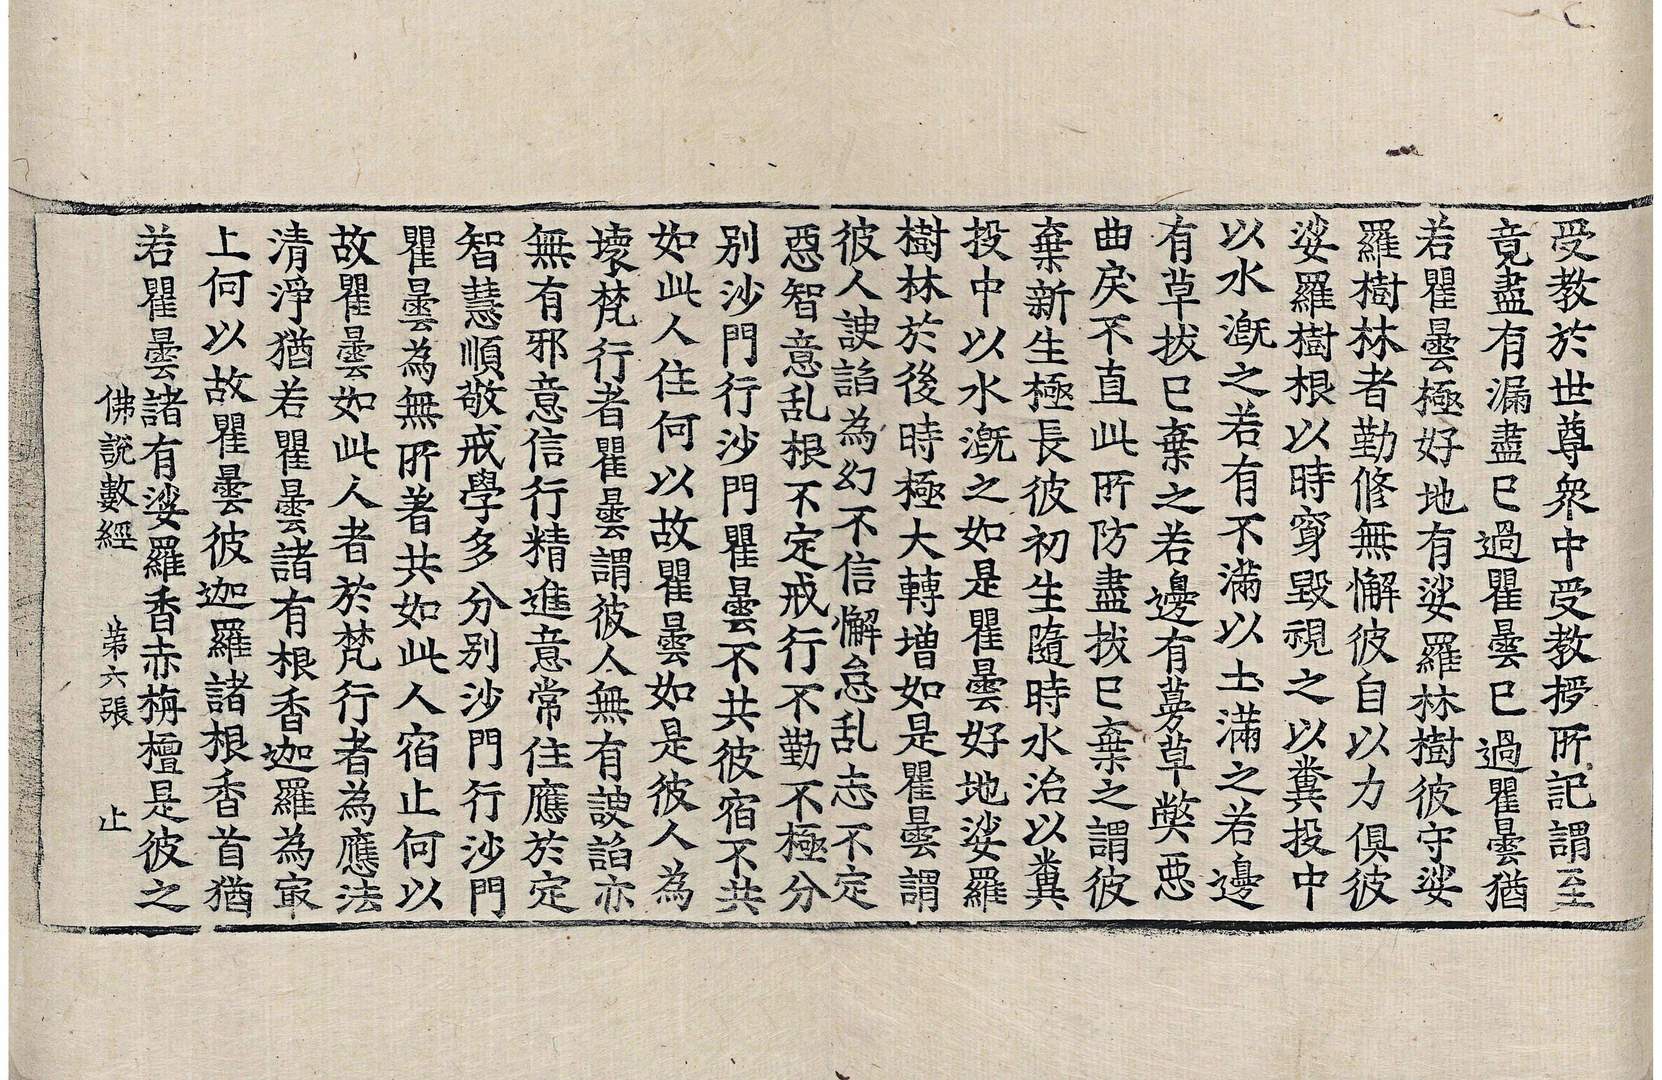 受教於世尊衆中受教授所記謂至
竟盡有漏盡已過瞿曇已過瞿曇猶
若瞿曇極好地有娑羅林樹彼守娑
羅樹林者勤修無懈彼自以力俱彼
娑羅樹根以時穿毀視之以糞投中
以水漑之若有不滿以土滿之若邊
有草拔已棄之若邊有蒡草獘惡
曲戾不直此所防盡拔已棄之謂彼
棄新生極長彼初生隨時水治以糞
投中以水漑之如是瞿曇好地娑羅
樹林於後時極大轉增如是瞿曇謂
彼人諛諂為幻不信懈怠乱志不定
惡智意乱根不定戒行不勤不極分
別沙門行沙門瞿曇不共彼宿不共
如此人住何以故瞿曇如是彼人為
壞梵行者瞿曇謂彼人無有諛諂亦
無有邪意信行精進意常住應於定
智慧順敬戒學多分別沙門行沙門
瞿曇為無所著共如此人宿止何以
故瞿曇如此人者於梵行者為應法
清淨猶若瞿曇諸有根香迦羅為㝡
上何以故瞿曇彼迦羅諸根香首猶
若瞿曇諸有娑羅香赤栴檀是彼之
佛說數經 第六張 止